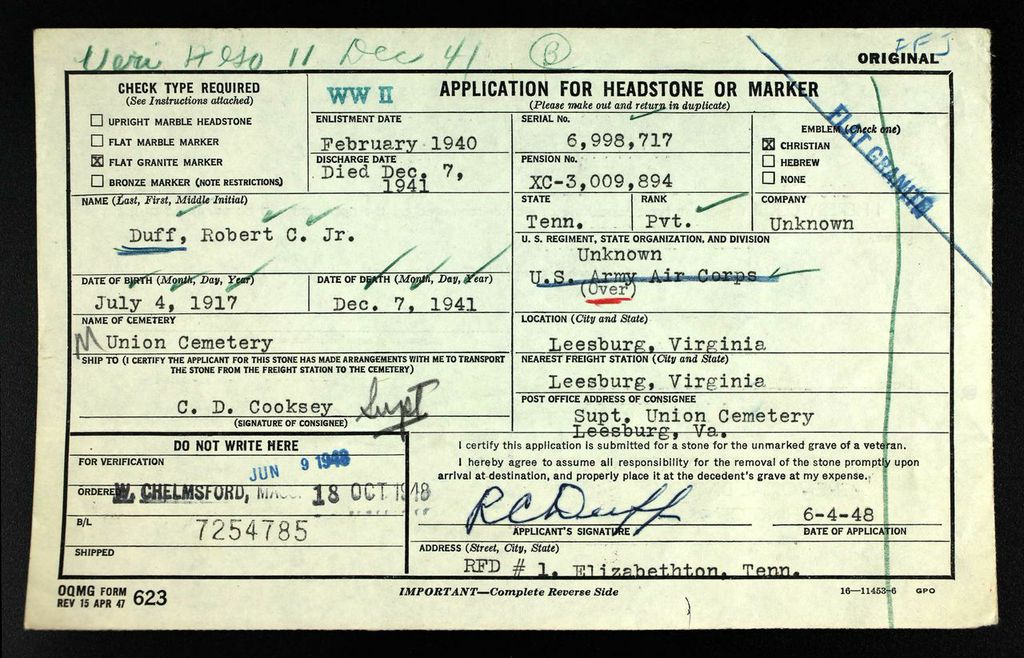 Veri Also 11 Dec 41 B
FFJ
ORIGINAL
CHECK TYPE REQUIRED
(See Instructions attached)
UPRIGHT MARBLE HEADSTONE
FLAT MARBLE MARKER
FLAT GRANITE MARKER
BRONZE MARKER (NOTE RESTRICTIONS)
WW II
APPLICATION FOR HEADSTONE OR MARKER
(Please make out and return in duplicate)
ENLISTMENT DATE
February 1940
DISCHARGE DATE
Died Dec. 7,
1941
SERIAL No.
6,998,717
PENSION No.
XC-3,009,894
EMBLEM (Check one)
CHRISTIAN
HEBREW
NONE
FLAT GRANITE
NAME (Last, First, Middle Initial)
Duff, Robert C. Jr.
STATE
Tenn.
RANK
Pvt.
COMPANY
Unknown
U. S. REGIMENT, STATE ORGANIZATION, AND DIVISION
Unknown
U.S. Army Air Corps
(Over)
DATE OF BIRTH (Month, Day, Year)
July 4, 1917
DATE OF DEATH (Month, Day, Year)
Dec. 7, 1941
NAME OF CEMETERY
M Union Cemetery
LOCATION (City and State)
Leesburg, Virginia
SHIP TO (I CERTIFY THE APPLICANT FOR THIS STONE HAS MADE ARRANGEMENTS WITH ME TO TRANSPORT
THE STONE FROM THE FREIGHT STATION TO THE CEMETERY)
C. D. Cooksey Supt
(SIGNATURE OF CONSIGNEE)
NEAREST FREIGHT STATION (City and State)
Leesburg, Virginia
POST OFFICE ADDRESS OF CONSIGNEE
Supt. Union Cemetery
Leesburg, Va.
DO NOT WRITE HERE
FOR VERIFICATION
JUN 9 1948
ORDERED
W. CHELMSFORD, MASS. 18 OCT 1948
B/L
7254785
SHIPPED
I certify this application is submitted for a stone for the unmarked grave of a veteran.
I hereby agree to assume all responsibility for the removal of the stone promptly upon
arrival at destination, and properly place it at the decedent's grave at my expense.
R C Duff
APPLICANT'S SIGNATURE
6-4-48
DATE OF APPLICATION
ADDRESS (Street, City, State)
RFD # 1. Elizabethton. Tenn.
OQMG FORM
REV 15 APR 47 623
IMPORTANT—Complete Reverse Side
16—11453-6 GPO